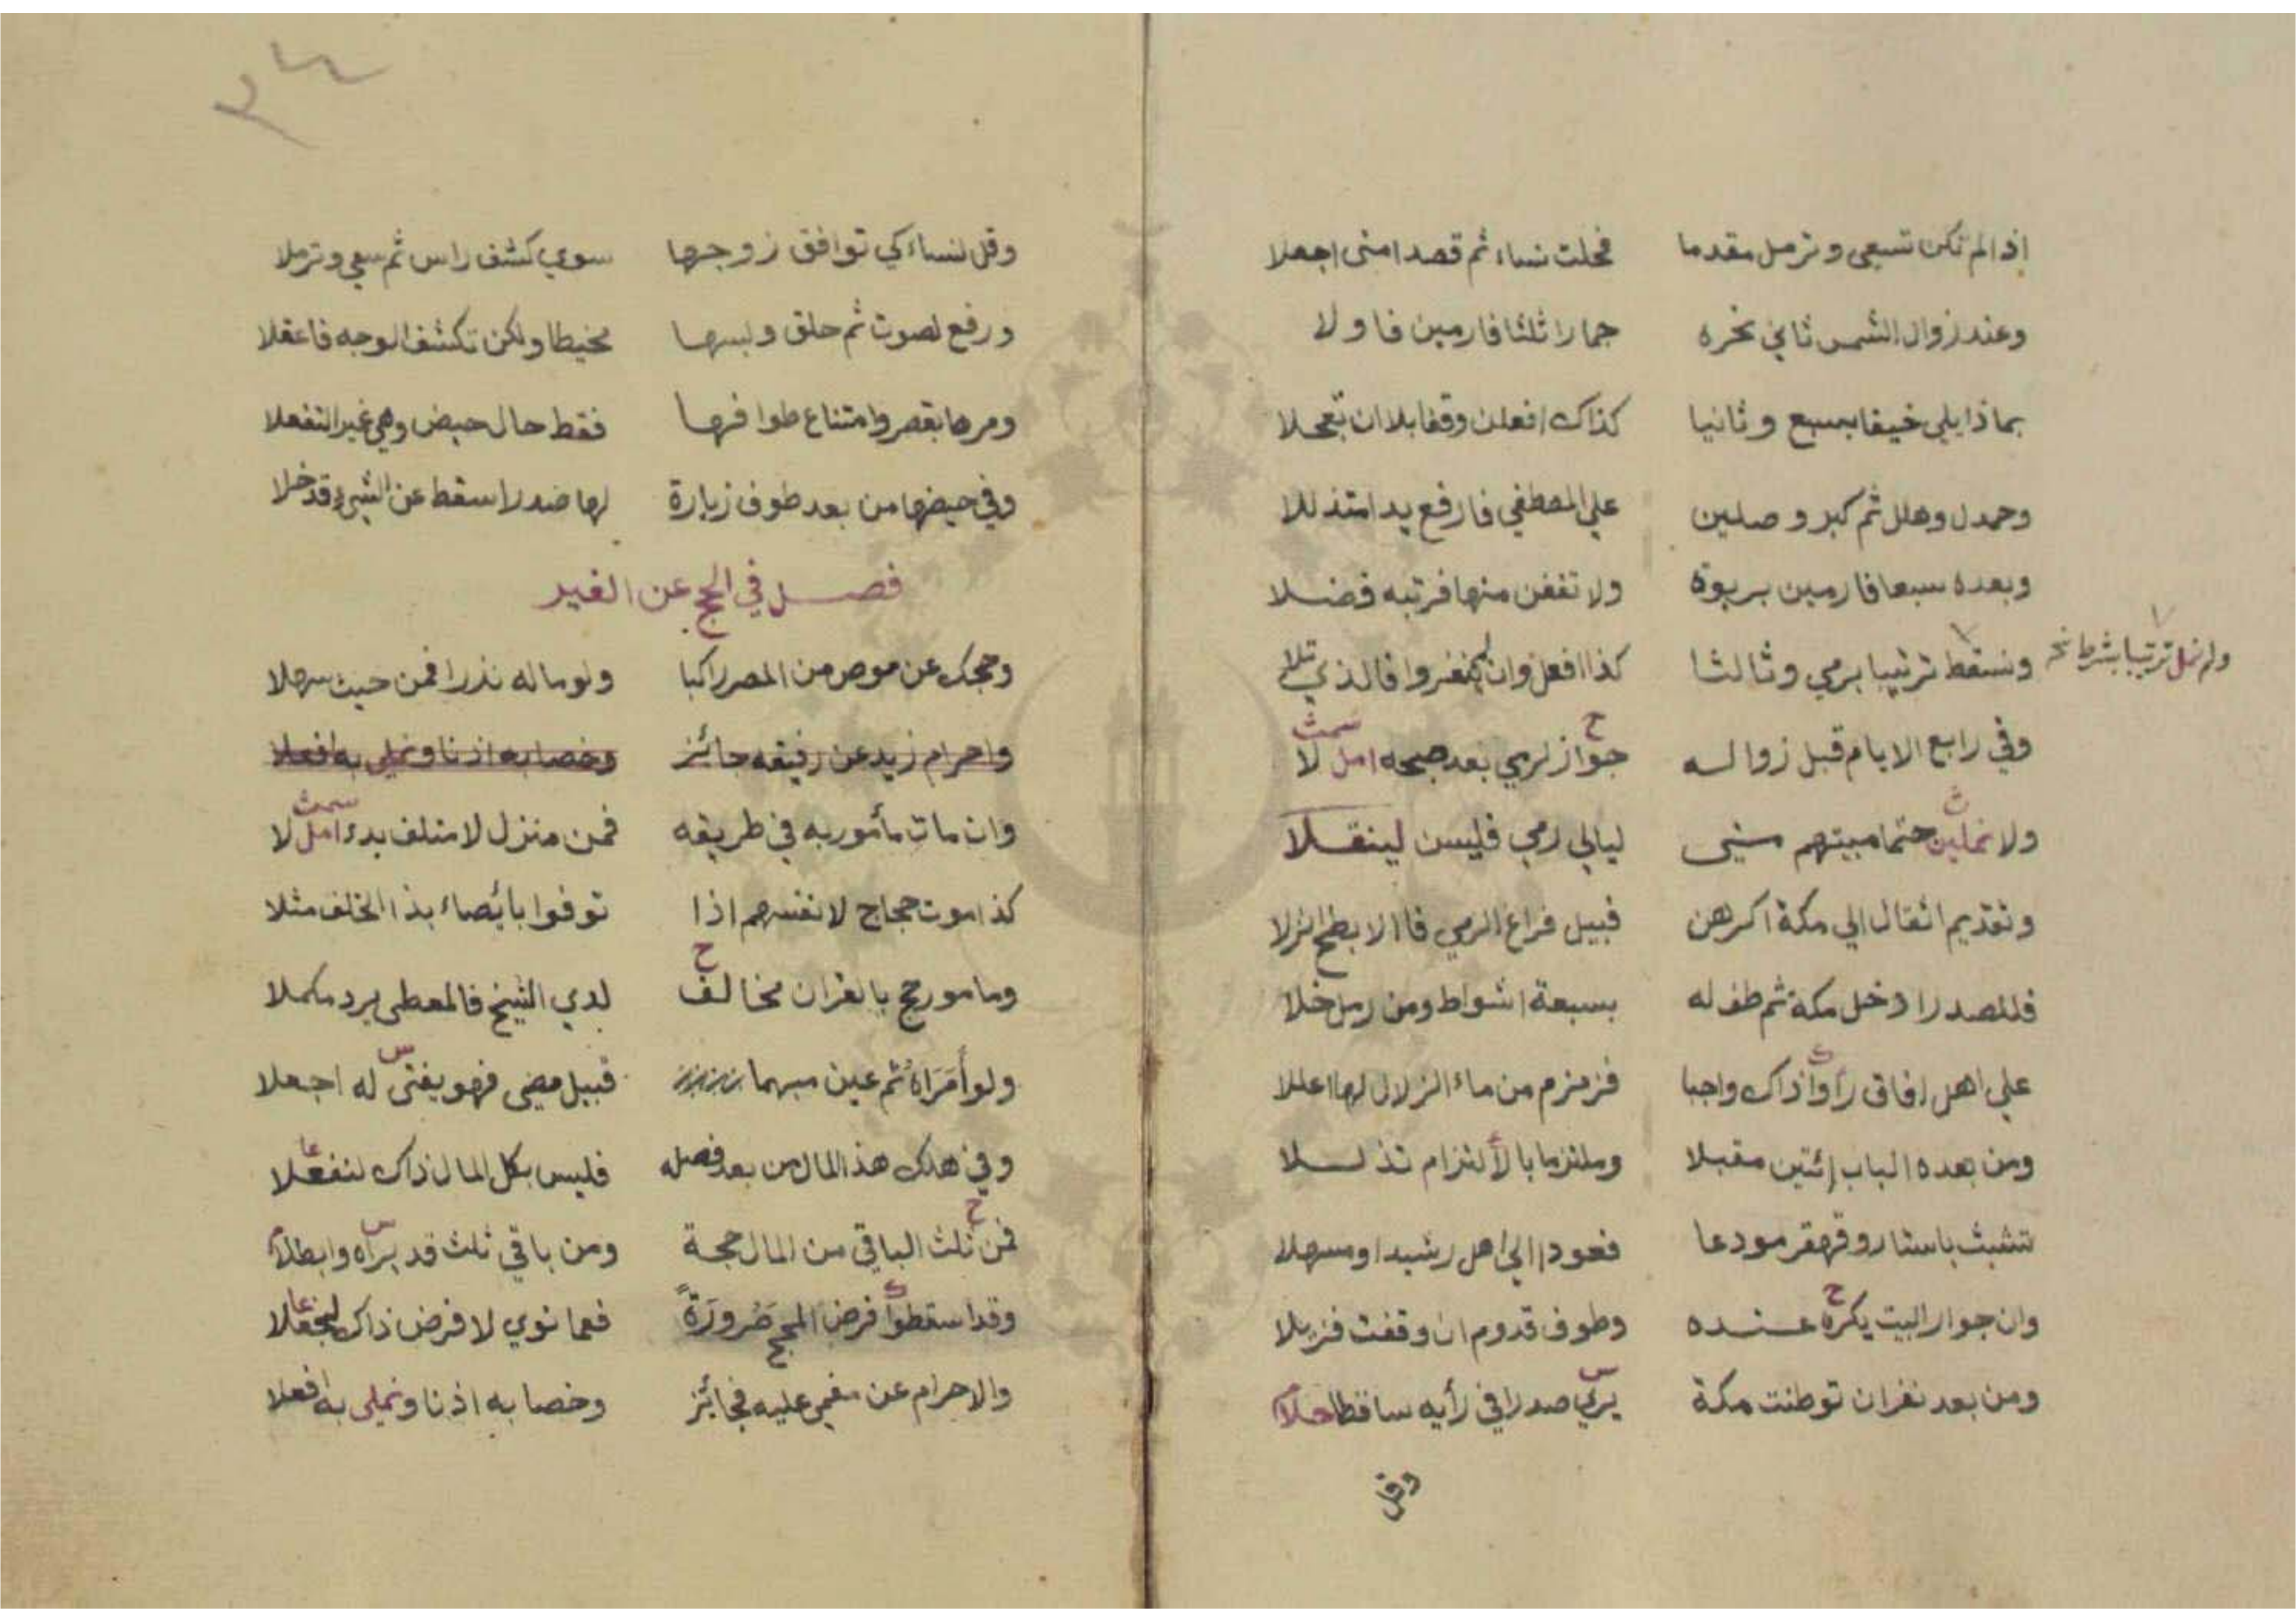 اذا لم تكن تسعى وترمل مقدما فحلت نساء ثم قصدا منى اجعلا
وعند زوال الشمس ثاني نحره جمارا ثلثا فارمين فاولا
بماذا يلي خيفا بسبع وثانيا كذاك افعلن وقفا بلا ان تعجلا
وحمدل وهلل ثم كبر وصلين علي المصطفي فارفع يدا متذللا
وبعده سبعا فارمين بربوة ولا تقفن منها فرتبه فضلا
ونسقط ترتيبا برمي وثالثا كذا افعل وان لم ينفروا فالذي تلا
ولم نمل ترتيبا بشرط
وفي رابع الايام قبل زواله جواز لرمي بعد صبحه امل لا
ح سمث
ولا نملين حتما مبيتهم منى ليالي رمي فليسن لينقلا
ث
وتقديم اثقال الي مكة اكرهن قبيل فراغ الرمي فاالابطح انزلا
فللصدر ادخل مكة ثم طف له بسبعة اشواط ومن رمل خلا
علي اهل افاق راوا ذاك واجبا فزمزم من ماء الزلال لها اعللا
ومن بعده الباب إئتين مقبلا وملتزما بالألتزام تذللا
تشبث باستار وقهقر مودعا فعودا الي اهل رشيدا ومسهلا
وان جوار البيت يكره عنده وطوف قدوم ان وقفت فزيلا
ح
ومن بعد نفر ان توطنت مكة يرى صدرا في رأيه ساقطا حلا
س
وقل
٣٤
وقل لنساء كي توافق زوجها سوي كشف راس ثم سعي وترملا
ورفع لصوت ثم حلق ولبسها مخيطا ولكن تكشف الوجه فاعقلا
ومرها بقصر وامتناع طوافها فقط حال حيض وهي غير التفعلا
وفي حيضها من بعد طوف زيارة لها صدرا سقط عن الشيء قد خلا
فصل في الحج عن الغير
وحجك عن موص من المصر راكبا ولو ماله نذرا فمن حيث سهلا
واحرام زيد عن رفيقه جائز وخصا به اذنا ونملي به افعلا
وان مات مأمور به في طريقه فمن منزل لا متلف بدء امل لا
سمث
كذا موت حجاج لانفسهم اذا توفوا بايصاء بذا الخلف مثلا
ومامور حج بالقران مخالف لدي الشيخ فالمعطى يرد مكملا
ح
ولو أمراه ثم عين مبهما قبيل مضي فهو يفتى له اجعلا
س
وفي هلك هذ المال من بعد فصله فليس بكل المال ذاك لنفعلا
عا
فمن ثلث الباقي من المال حجة ومن باقي ثلث قد يراه وابطلا
ح س
وقد اسقطوا فرض الحج ضرورة فعما نوي لا فرض ذاك ليجعلا
عا
والاحرام عن مغمي عليه فجائز وخصا به اذنا ونملي به افعلا